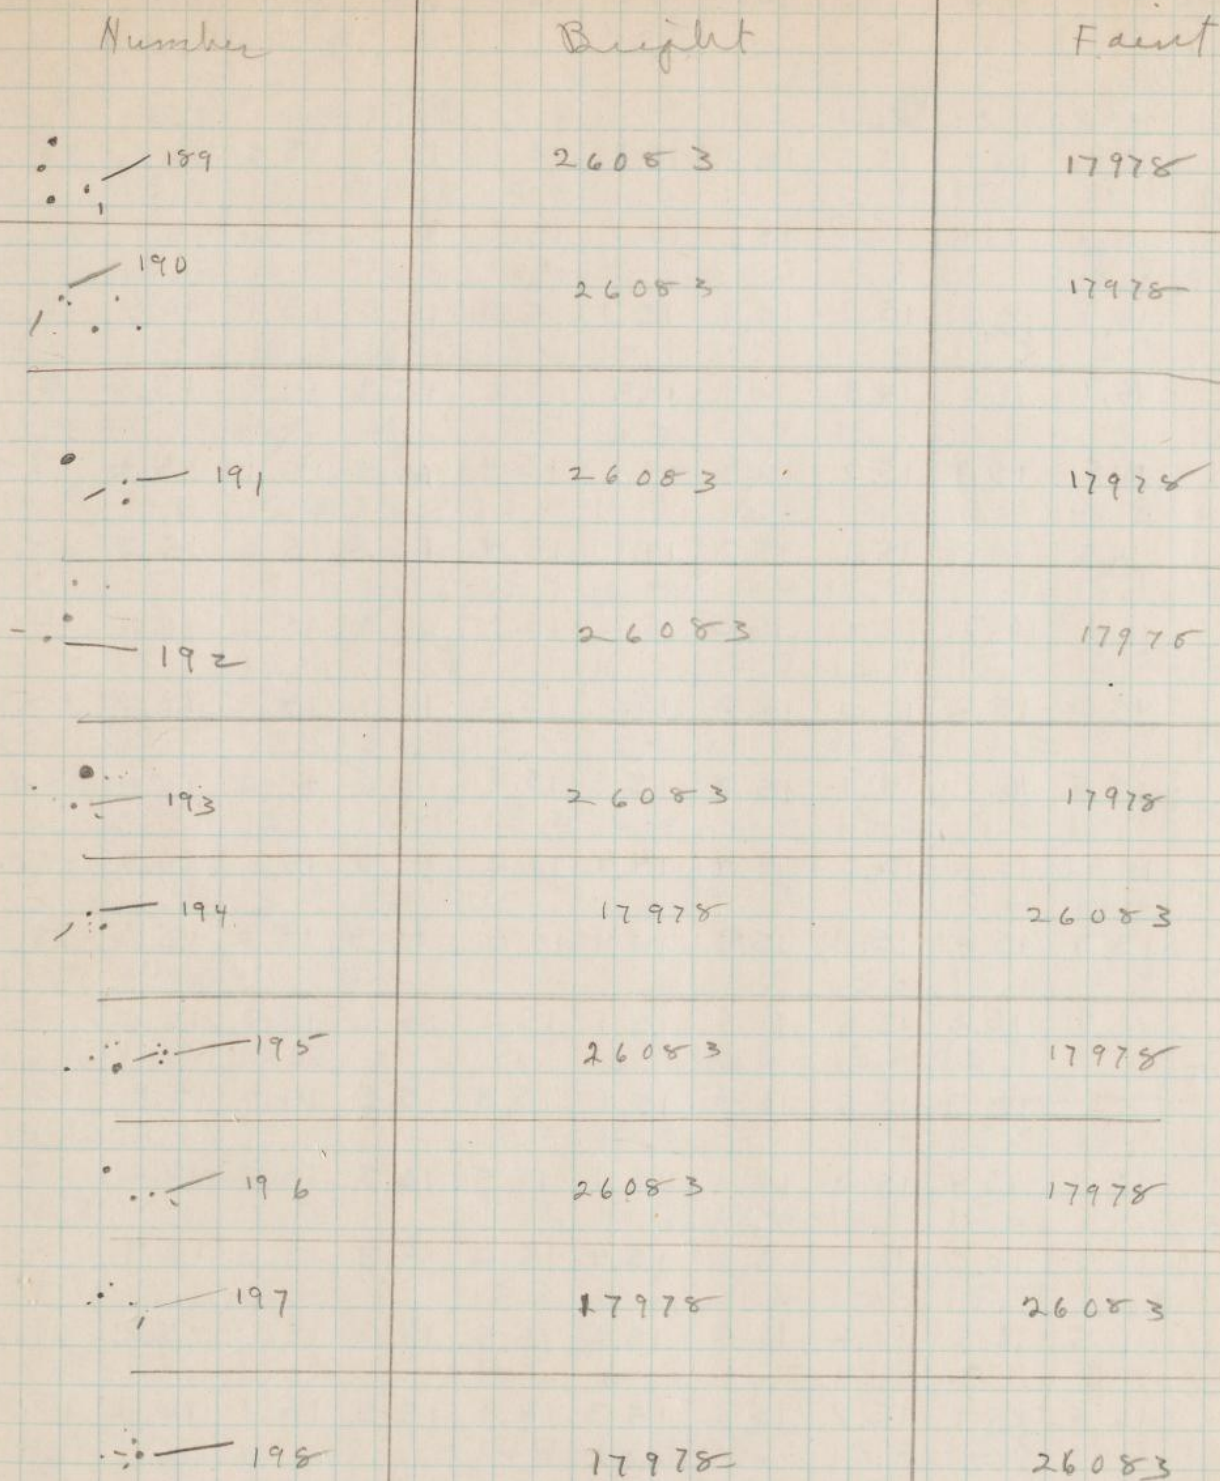 Number Bright Faint
189 26083 17978
190 26083 17978
191 26083 17978
192 26083 17978
193 26083 17978
194 17978 26083
195 26083 17978
196 26083 17978
197 17978 26083
198 17978 26083